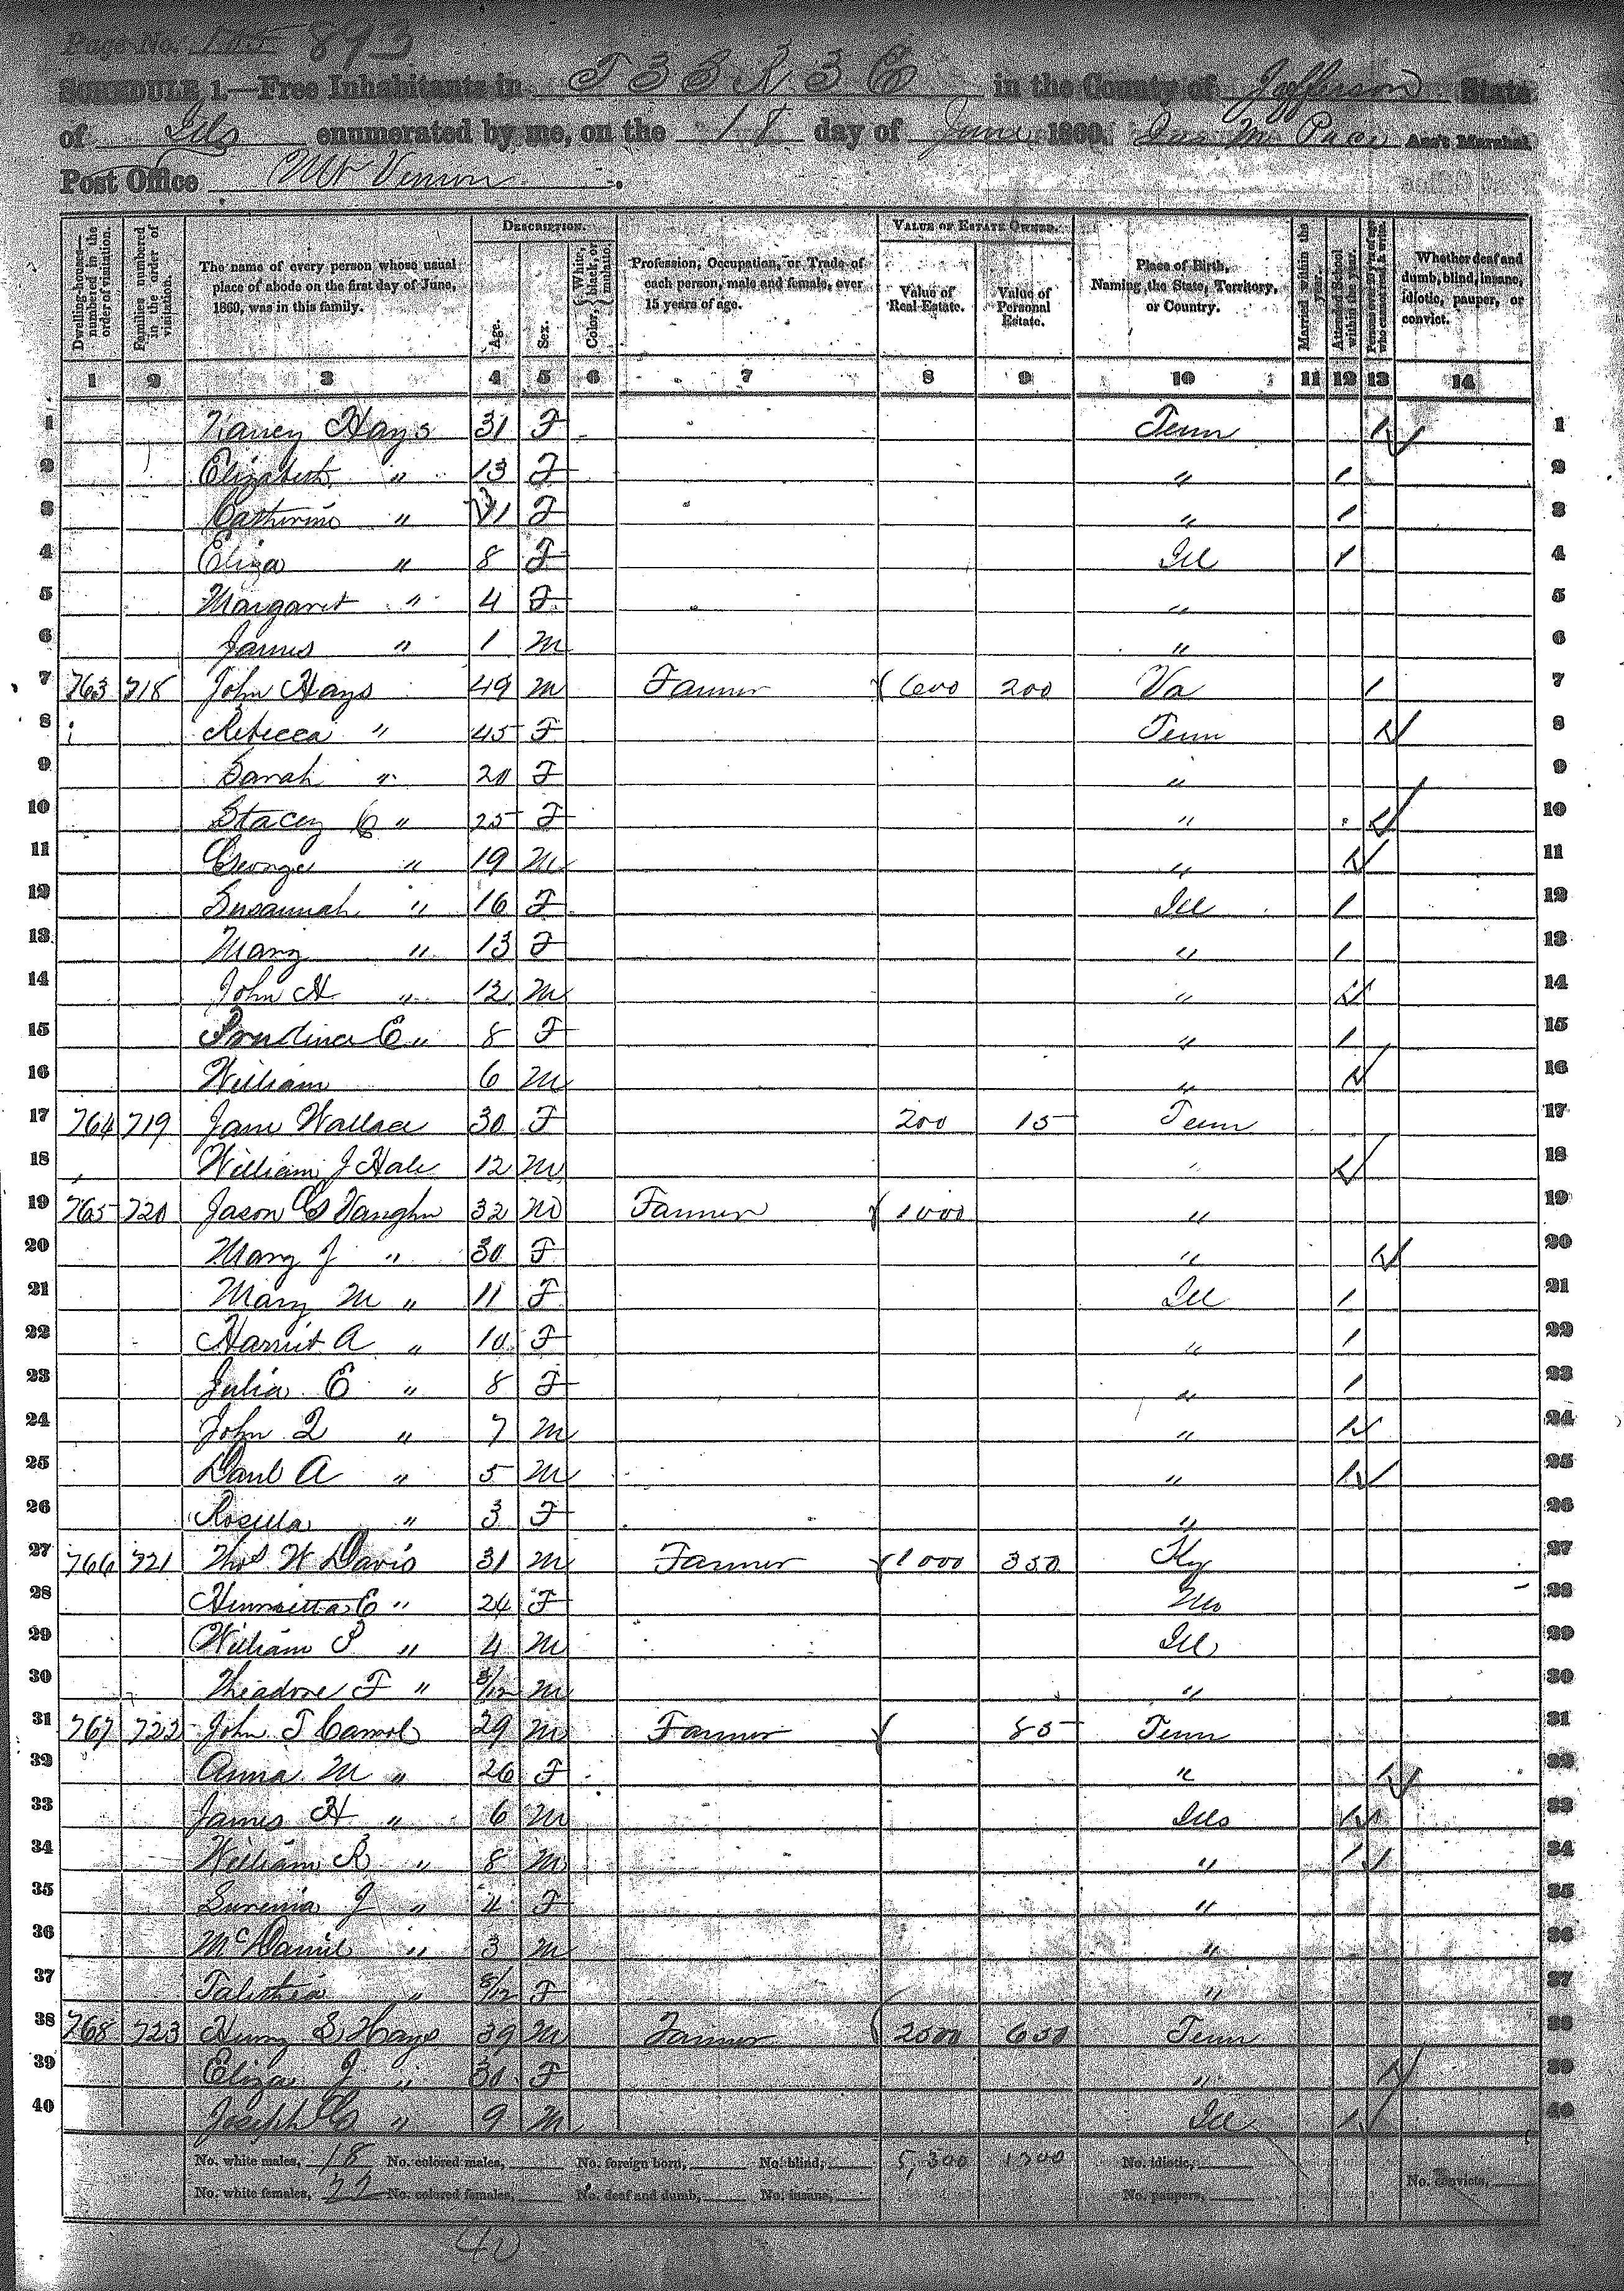 Page No. 893
SCHEDULE 1.—Free Inhabitants in T 3 S R 3 E in the County of Jefferson State
of Ills enumerated by me, on the 18 day of June 1860. Pace Ass't Marshal
Post Office Mt Vernon.
DESCRIPTION. VALUE OF ESTATE OWNED.
Dwelling-houses—numbered in the order of visitation. Families numbered in the order of visitation. The name of every person whose usual place of abode on the first day of June, 1860, was in this family. Age. Sex. Color, { White, black, or mulatto. Profession, Occupation, or Trade of each person, male and female, over 15 years of age. Value of Real Estate. Value of Personal Estate. Place of Birth, Naming the State, Territory, or Country. Married within the year. Attended School within the year. Whether deaf and dumb, blind, insane, idiotic, pauper, or convict.
1 2 3 4 5 6 7 8 9 10 11 12 13 14
1 Nancy Hays 31 F Tenn 1 1
2 Elizabeth " 13 F " 1 2
3 Catherine " 11 F " 1 3
4 Eliza " 8 F Ill 1 4
5 Margaret " 4 F " 5
6 James " 1 M " 6
7 763 718 John Hays 49 M Farmer 600 200 Va 1 7
8 Rebecca " 45 F Tenn 1 8
9 Sarah " 20 F " 9
10 Stacey C " 25 F " 1 10
11 George " 19 M " 1 11
12 Susannah " 16 F Ill 1 12
13 Mary " 13 F " 1 13
14 John H " 12 M " 1 14
15 Prudince E " 8 F " 1 15
16 William 6 M " 1 16
17 764 719 Jane Wallace 30 F 200 15 Tenn 17
18 William J Hale 12 M " 1 18
19 765 720 Jason G Vaughn 32 M Farmer 1000 " 19
20 Mary J " 30 F " 1 20
21 Mary M " 11 F Ill 1 21
22 Harriet A " 10 F " 1 22
23 Julia E " 8 F " 1 23
24 John Q " 7 M " 1 24
25 Danl A " 5 M " 1 25
26 Rosella " 3 F " 26
27 766 721 Thos W Davis 31 M Farmer 1000 350 Ky 27
28 Henrietta E " 24 F Mo 28
29 William P " 4 M Ill 29
30 Theadore F " 8/12 M " 30
31 767 722 John T Carrol 29 M Farmer 85 Tenn 31
32 Anna M " 26 F " 1 32
33 James H " 6 M Ills 1 33
34 William R " 8 M " 1 34
35 Surenia J " 4 F " 35
36 McDaniel " 3 M " 36
37 Talithia " 8/12 F " 37
38 768 723 Henry S Hays 39 M Farmer 2500 650 Tenn 38
39 Eliza J " 30 F " 1 39
40 Joseph G " 9 M Ill 1 40
No. white males, 18 No. colored males, No. foreign born, No. blind, 5,300 1300 No. idiotic,
No. white females, 22 No. colored females, No. deaf and dumb, No. insane, No. paupers, No. convicts,
40